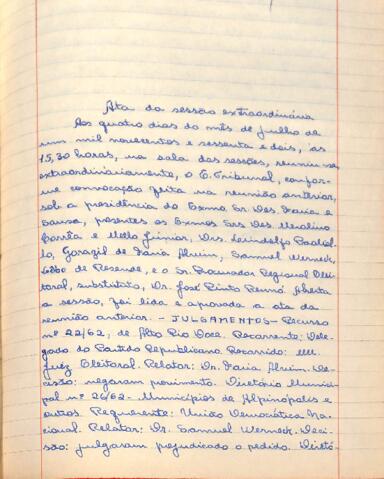 Ata da sessão extraordinária
Aos quatro dias do mês de julho de
um mil novecentos e sessenta e dois, às
15,30 horas, na sala das sessões, reuniu-se,
extraordinariamente, o E. Tribunal, confor-
me convocação feita na reunião anterior,
sob a presidência do Exmo. Sr. Des. Faria e
Sousa, presentes os Exmos Srs. Des. Merolino
Corrêa e Mello Júnior, Drs. Lindolfo
Gorazil de Faria Alvim, Samuel Werneck,
de Resende, e o Sr. Procurador Regional Elei-
toral, substituto, Dr. José Pinto Renó. Aberta
a sessão, foi lida e aprovada a ata da
reunião anterior. - JULGAMENTOS - Recurso
nº 22/62, de Alto Rio Doce. Recorrente: Dele-
gado do Partido Republicano. Recorrido: MM.
Juiz Eleitoral. Relator: Dr. Faria Alvim. De-
cisão: negaram provimento. Diretório Munici-
pal nº 26/62 - Municípios de Alpinópolis e
outros. Requerente: União Democrática Na-
cional. Relator: Dr. Samuel Werneck. Deci-
são: julgaram prejudicado o pedido. Diretó-